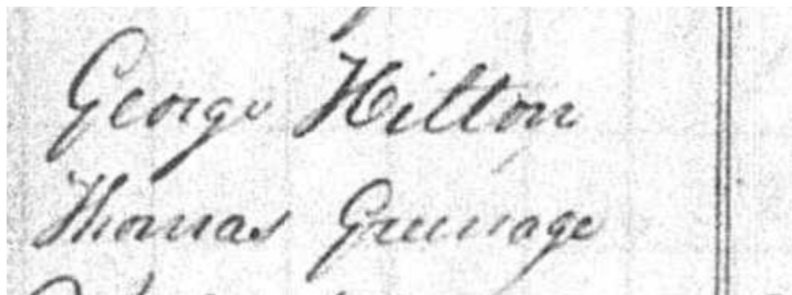 George Hilton
Thomas Greenage